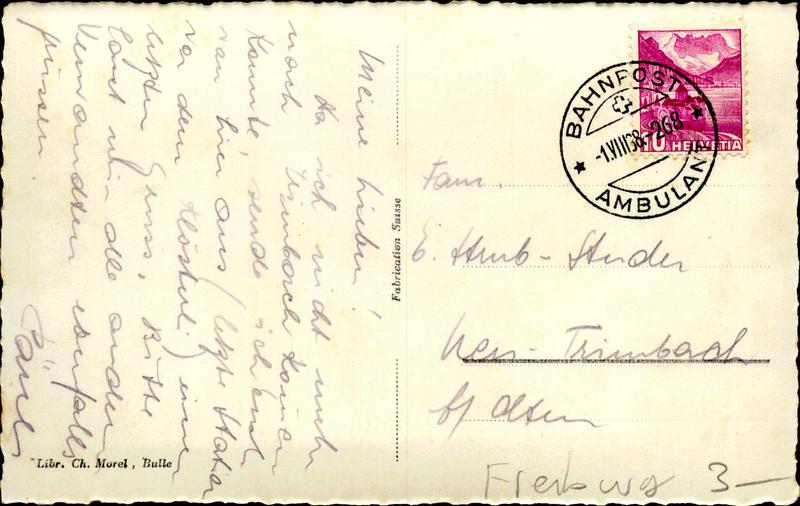 Meine Lieben!
Da ich nicht mehr
nach Trimbach kommen
konnte, sende ich Euch
von hier aus (letzte Station
vor dem Kloster!) einen
letzten Gruss. Bitte
lasst mir alle andern
Verwandten ebenfalls
grüssen.
Päuli
Libr. Ch. Morel, Bulle
Fabrication Suisse
BAHNPOST
-1.VIII38-268
AMBULANT
10 HELVETIA
Fam.
E. Strub-Studer
Neu-Trimbach
b/ Olten
Freiburg 3—